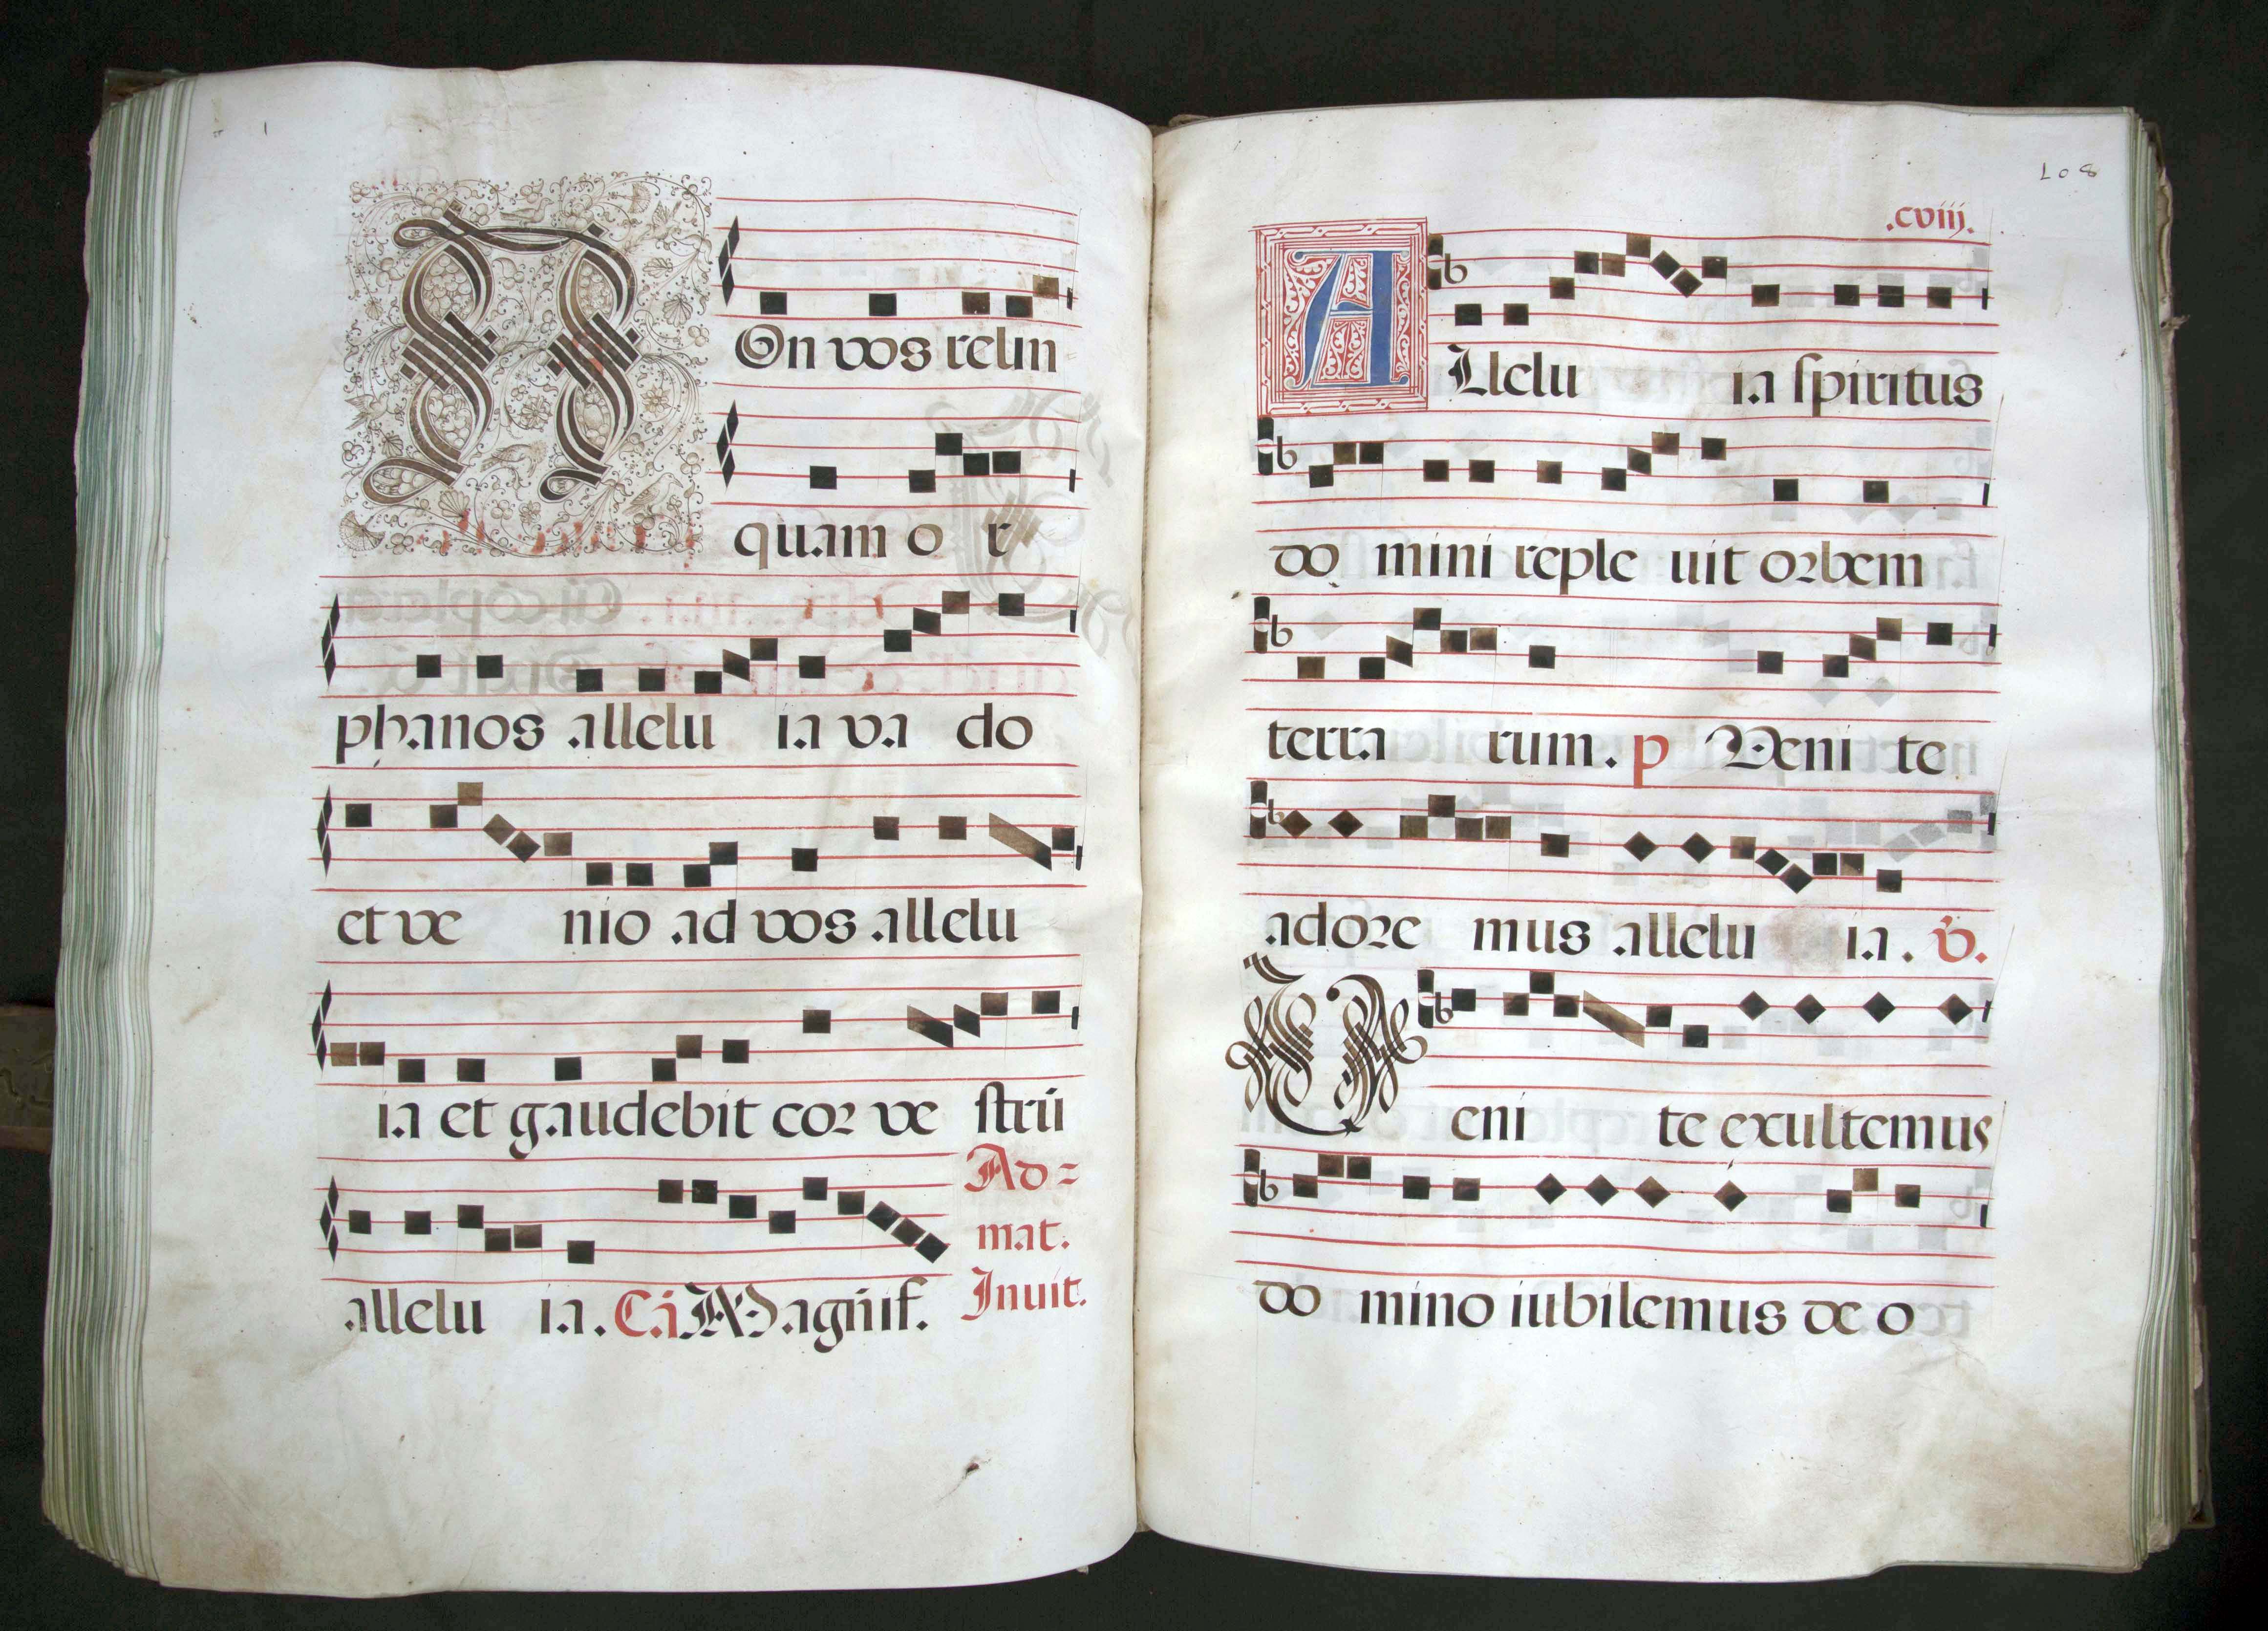 NOn vos relin
quam o r
phanos allelu ia va do
et ve nio ad vos allelu
ia et gaudebit cor ve strū
allelu ia. Cā Magnif.
Ad=
mat.
Inuit.
108
.cviij.
ALlelu ia spiritus
do mini reple uit orbem
terra rum. p Veni te
adore mus allelu ia. v.
Veni te exultemus
do mino iubilemus de o